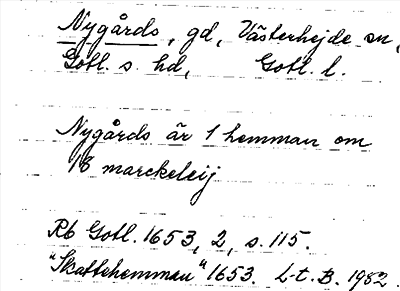 Nygårds, gd, Västerhejde sn,
Gotl. s. hd, Gotl. l.
Nygårds är 1 hemman om
18 marckeleij
Rb Gotl. 1653, 2, s. 115.
"Skattehemman" 1653. L-t. B. 1982.